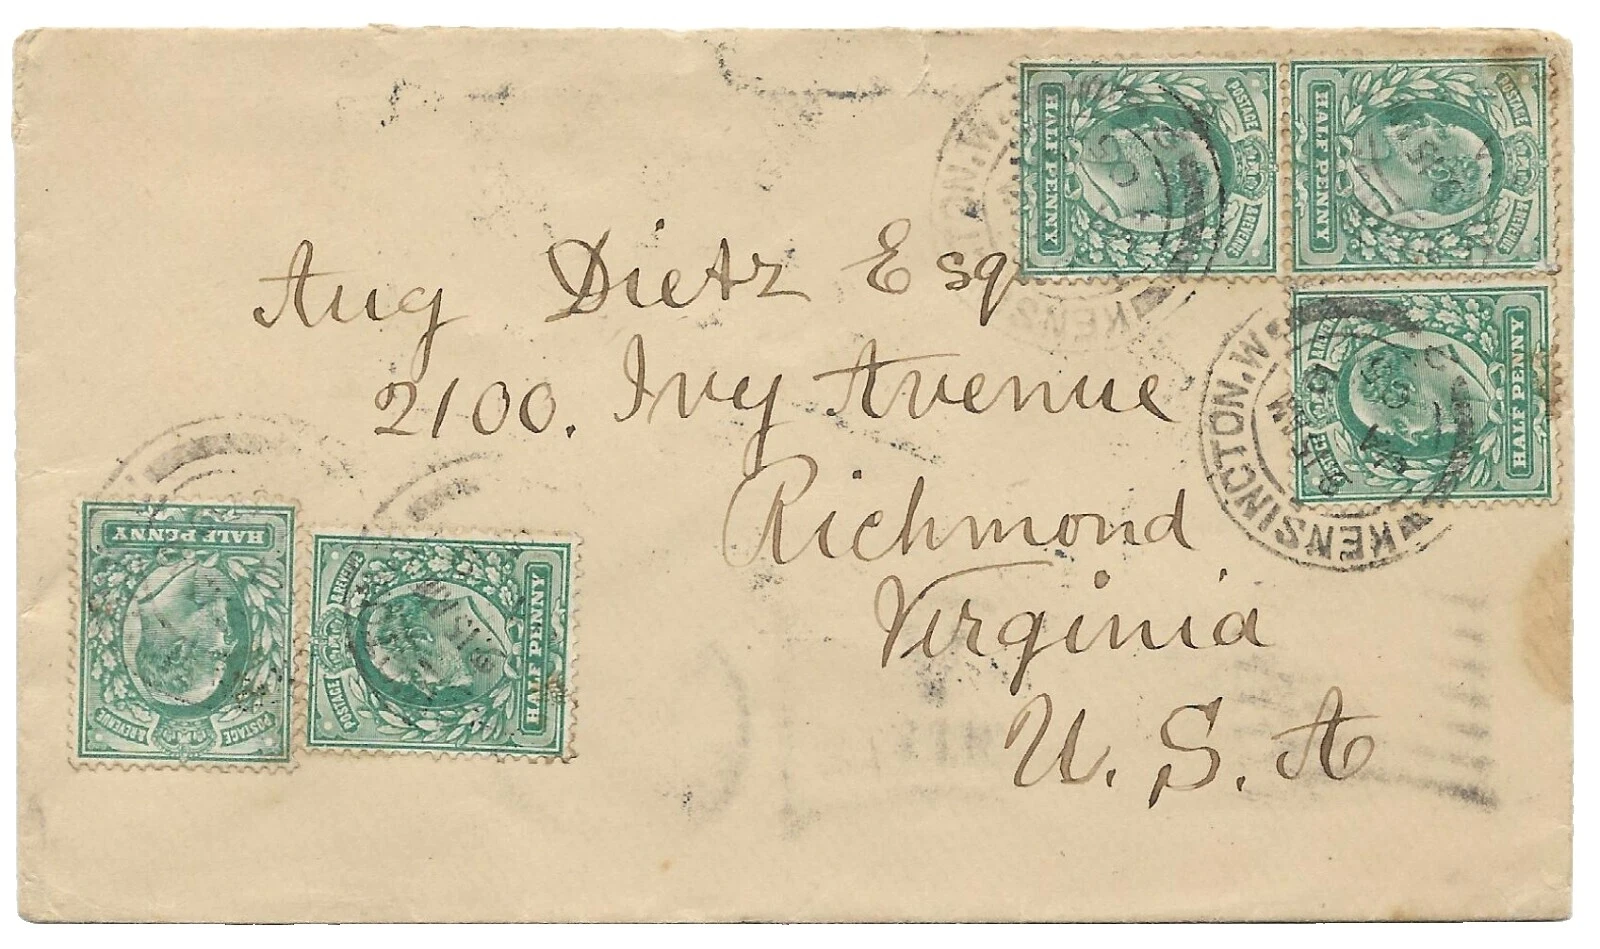 Aug Dietz Esq
2100. Ivy Avenue
Richmond
Virginia
U. S. A
POSTAGE
REVENUE
HALF PENNY
POSTAGE
REVENUE
HALF PENNY
POSTAGE
& REVENUE
HALF PENNY
HALF PENNY
POSTAGE
& REVENUE
POSTAGE
& REVENUE
HALF PENNY
KENSINGTON. W
KENSINGTON. W